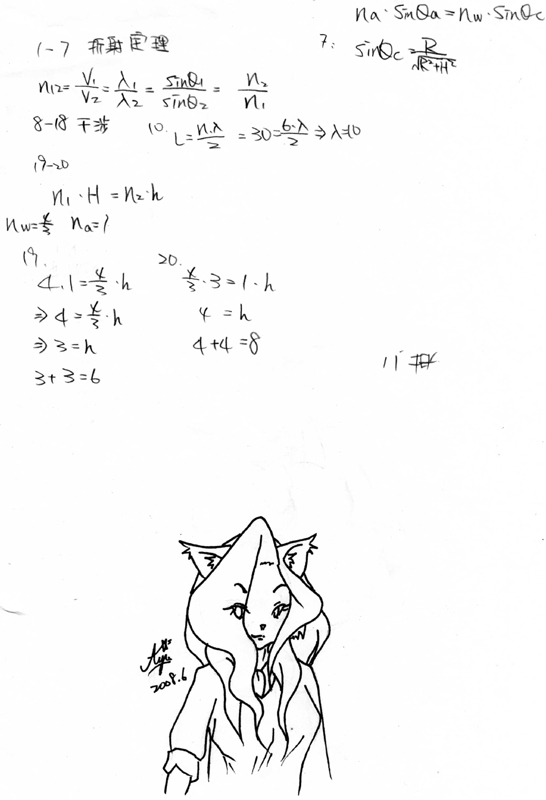 na·sinθa=nw·sinθc
1-7 折射定理
7: sinθc=R/√R²+H²
n12=V1/V2=λ1/λ2=sinθ1/sinθ2=n2/n1
8-18 干涉 10. L=n·λ/2=30=6·λ/2⇒λ=10
19-20
n1·H=n2·h
nw=4/3 na=1
19. 20.
4·1=4/3·h 4/3·3=1·h
⇒4=4/3·h 4=h
⇒3=h 4+4=8
3+3=6
11
2008.6